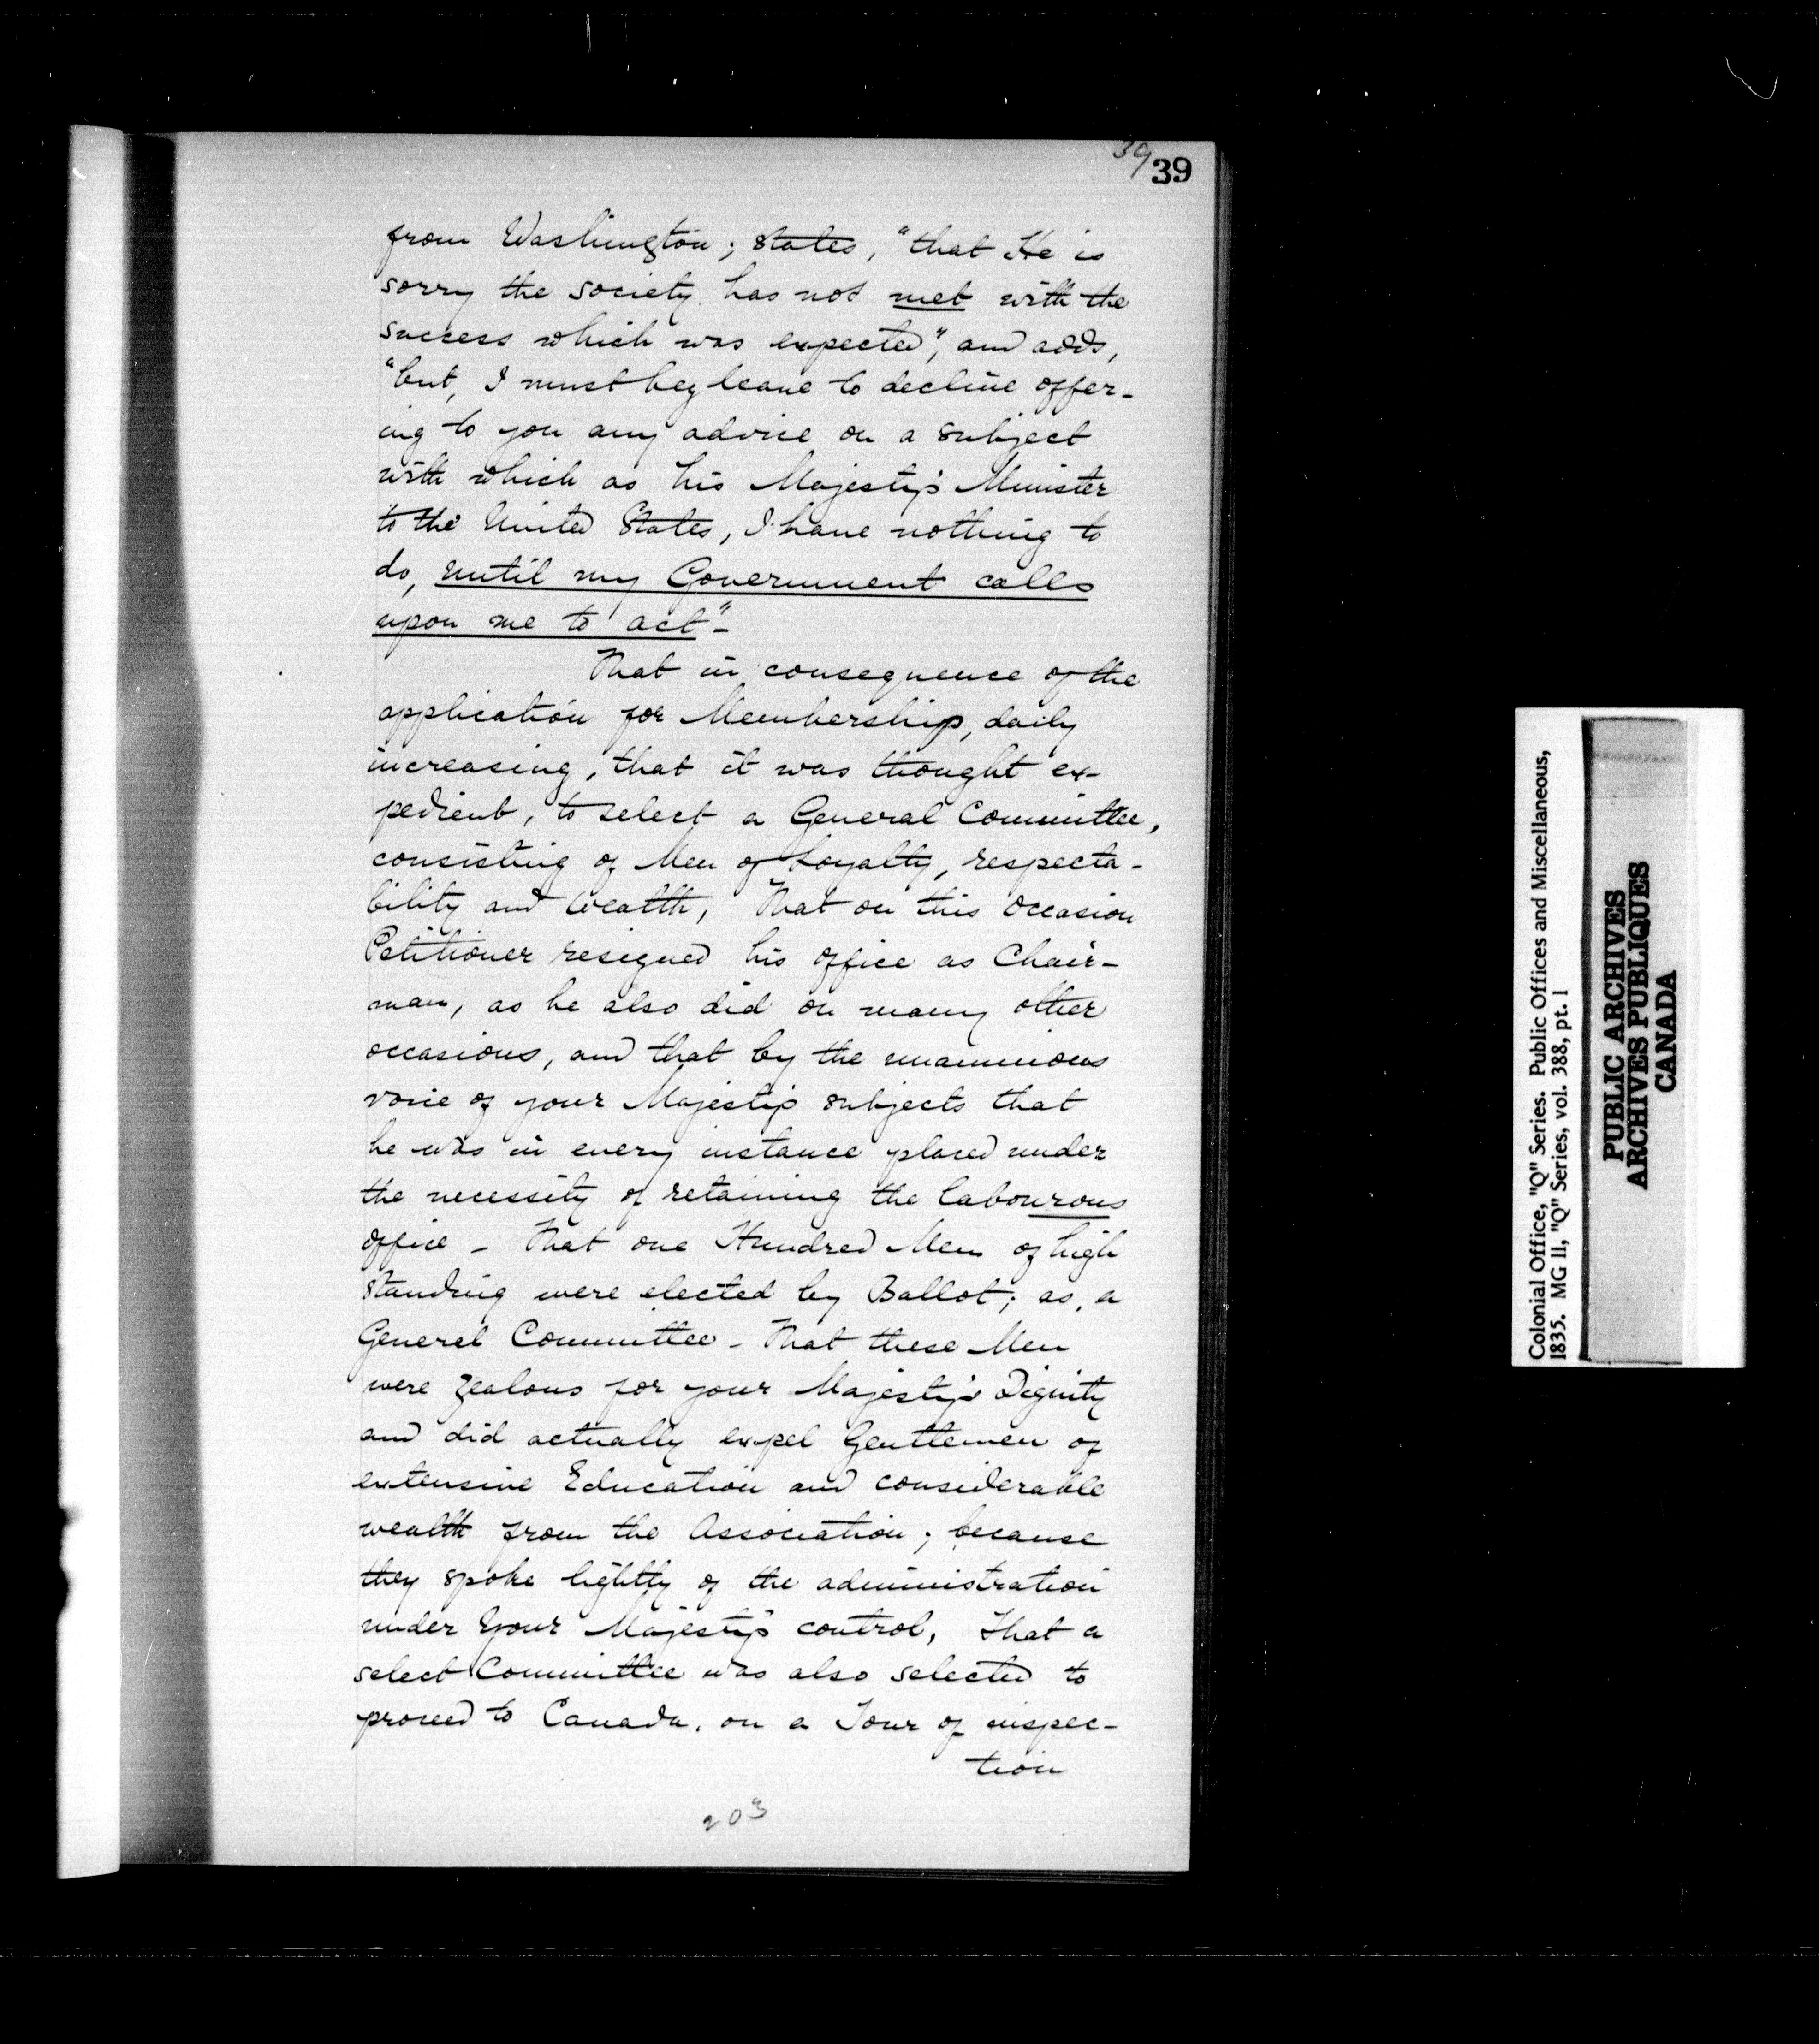 39/ 39
from Washington; states, "that He is
sorry the society has not met with the
success which was expected", and adds,
"but, I must beg leave to decline offer-
ing to you any advice on a subject
with which as his Majesty's Minister
to the United States, I have nothing to
do, until my Government calls
upon me to act"-
That in consequence of the
application for Membership, daily
increasing, that it was thought ex-
pedient, to select a General Committee,
consisting of Men of Loyalty, respecta-
bility and Wealth, That on this Occasion
Petitioner resigned his office as Chair-
man, as he also did on many other
occasions, and that by the unanimous
voice of your Majesty's subjects that
he was in every instance placed under
the necessity of retaining the labourous
office - That one Hundred Men of high
standing were elected by Ballot; as, a
General Committee - That these Men
were zealous for your Majesty's Dignity
and did actually expel Gentlemen of
extensive Education and considerable
wealth from the Association; because
they spoke lightly of the administration
under Your Majesty's control, That a
select Committee was also selected to
proceed to Canada, on a Tour of inspec-
tion
203
Colonial Office, "Q" Series. Public Offices and Miscellaneous,
1835. MG 11, "Q" Series, vol. 388, pt. 1
PUBLIC ARCHIVES
ARCHIVES PUBLIQUES
CANADA